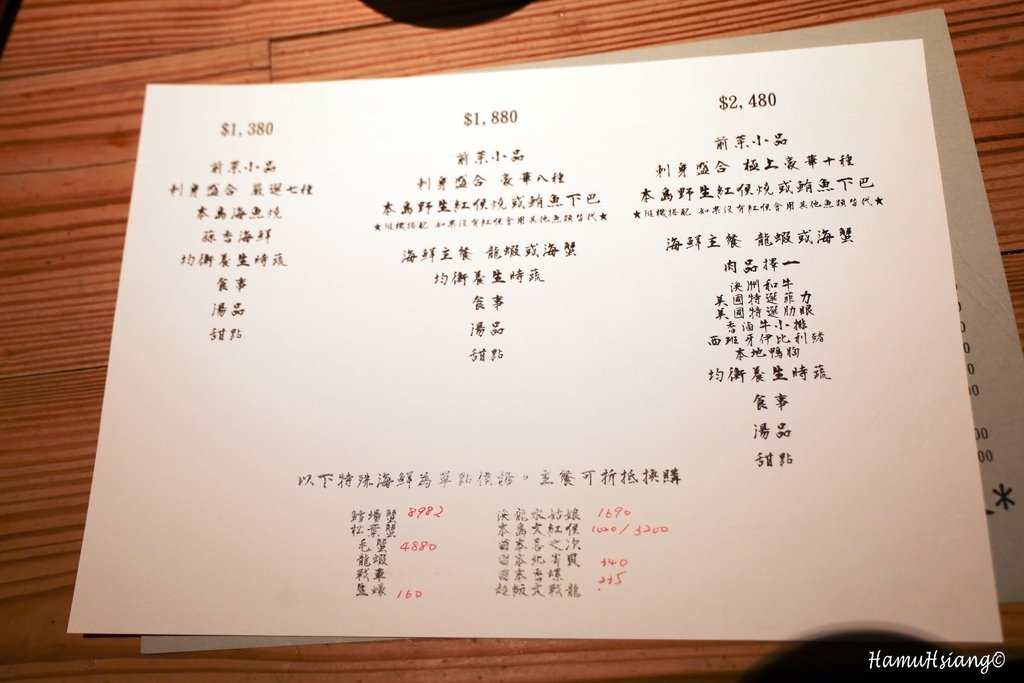 $1,380
前菜小品
刺身盛合 嚴選七種
本島海魚燒
蒜香海鮮
均衡養生時蔬
食事
湯品
甜點
$1,880
前菜小品
刺身盛合 豪華八種
本島野生紅喉燒或鮪魚下巴
★隨機搭配 如果沒有紅喉會用其他魚類替代★
海鮮主餐 龍蝦或海蟹
均衡養生時蔬
食事
湯品
甜點
$2,480
前菜小品
刺身盛合 極上豪華十種
本島野生紅喉燒或鮪魚下巴
★隨機搭配 如果沒有紅喉會用其他魚類替代★
海鮮主餐 龍蝦或海蟹
肉品擇一
澳洲和牛
美國特選菲力
美國特選肋眼
香滷牛小排
西班牙伊比利豬
本地鴨胸
均衡養生時蔬
食事
湯品
甜點
以下特殊海鮮為單點價格。主餐可折抵換購
鱈場蟹 8982
松葉蟹
毛蟹 4880
龍蝦
戰車
生蠔 160
澳龍水姑娘 1690
本島大紅喉 1020/3200
日本喜之次
日本北寄貝 340
日本香螺 235
超級大戰龍
HamuHsiang©